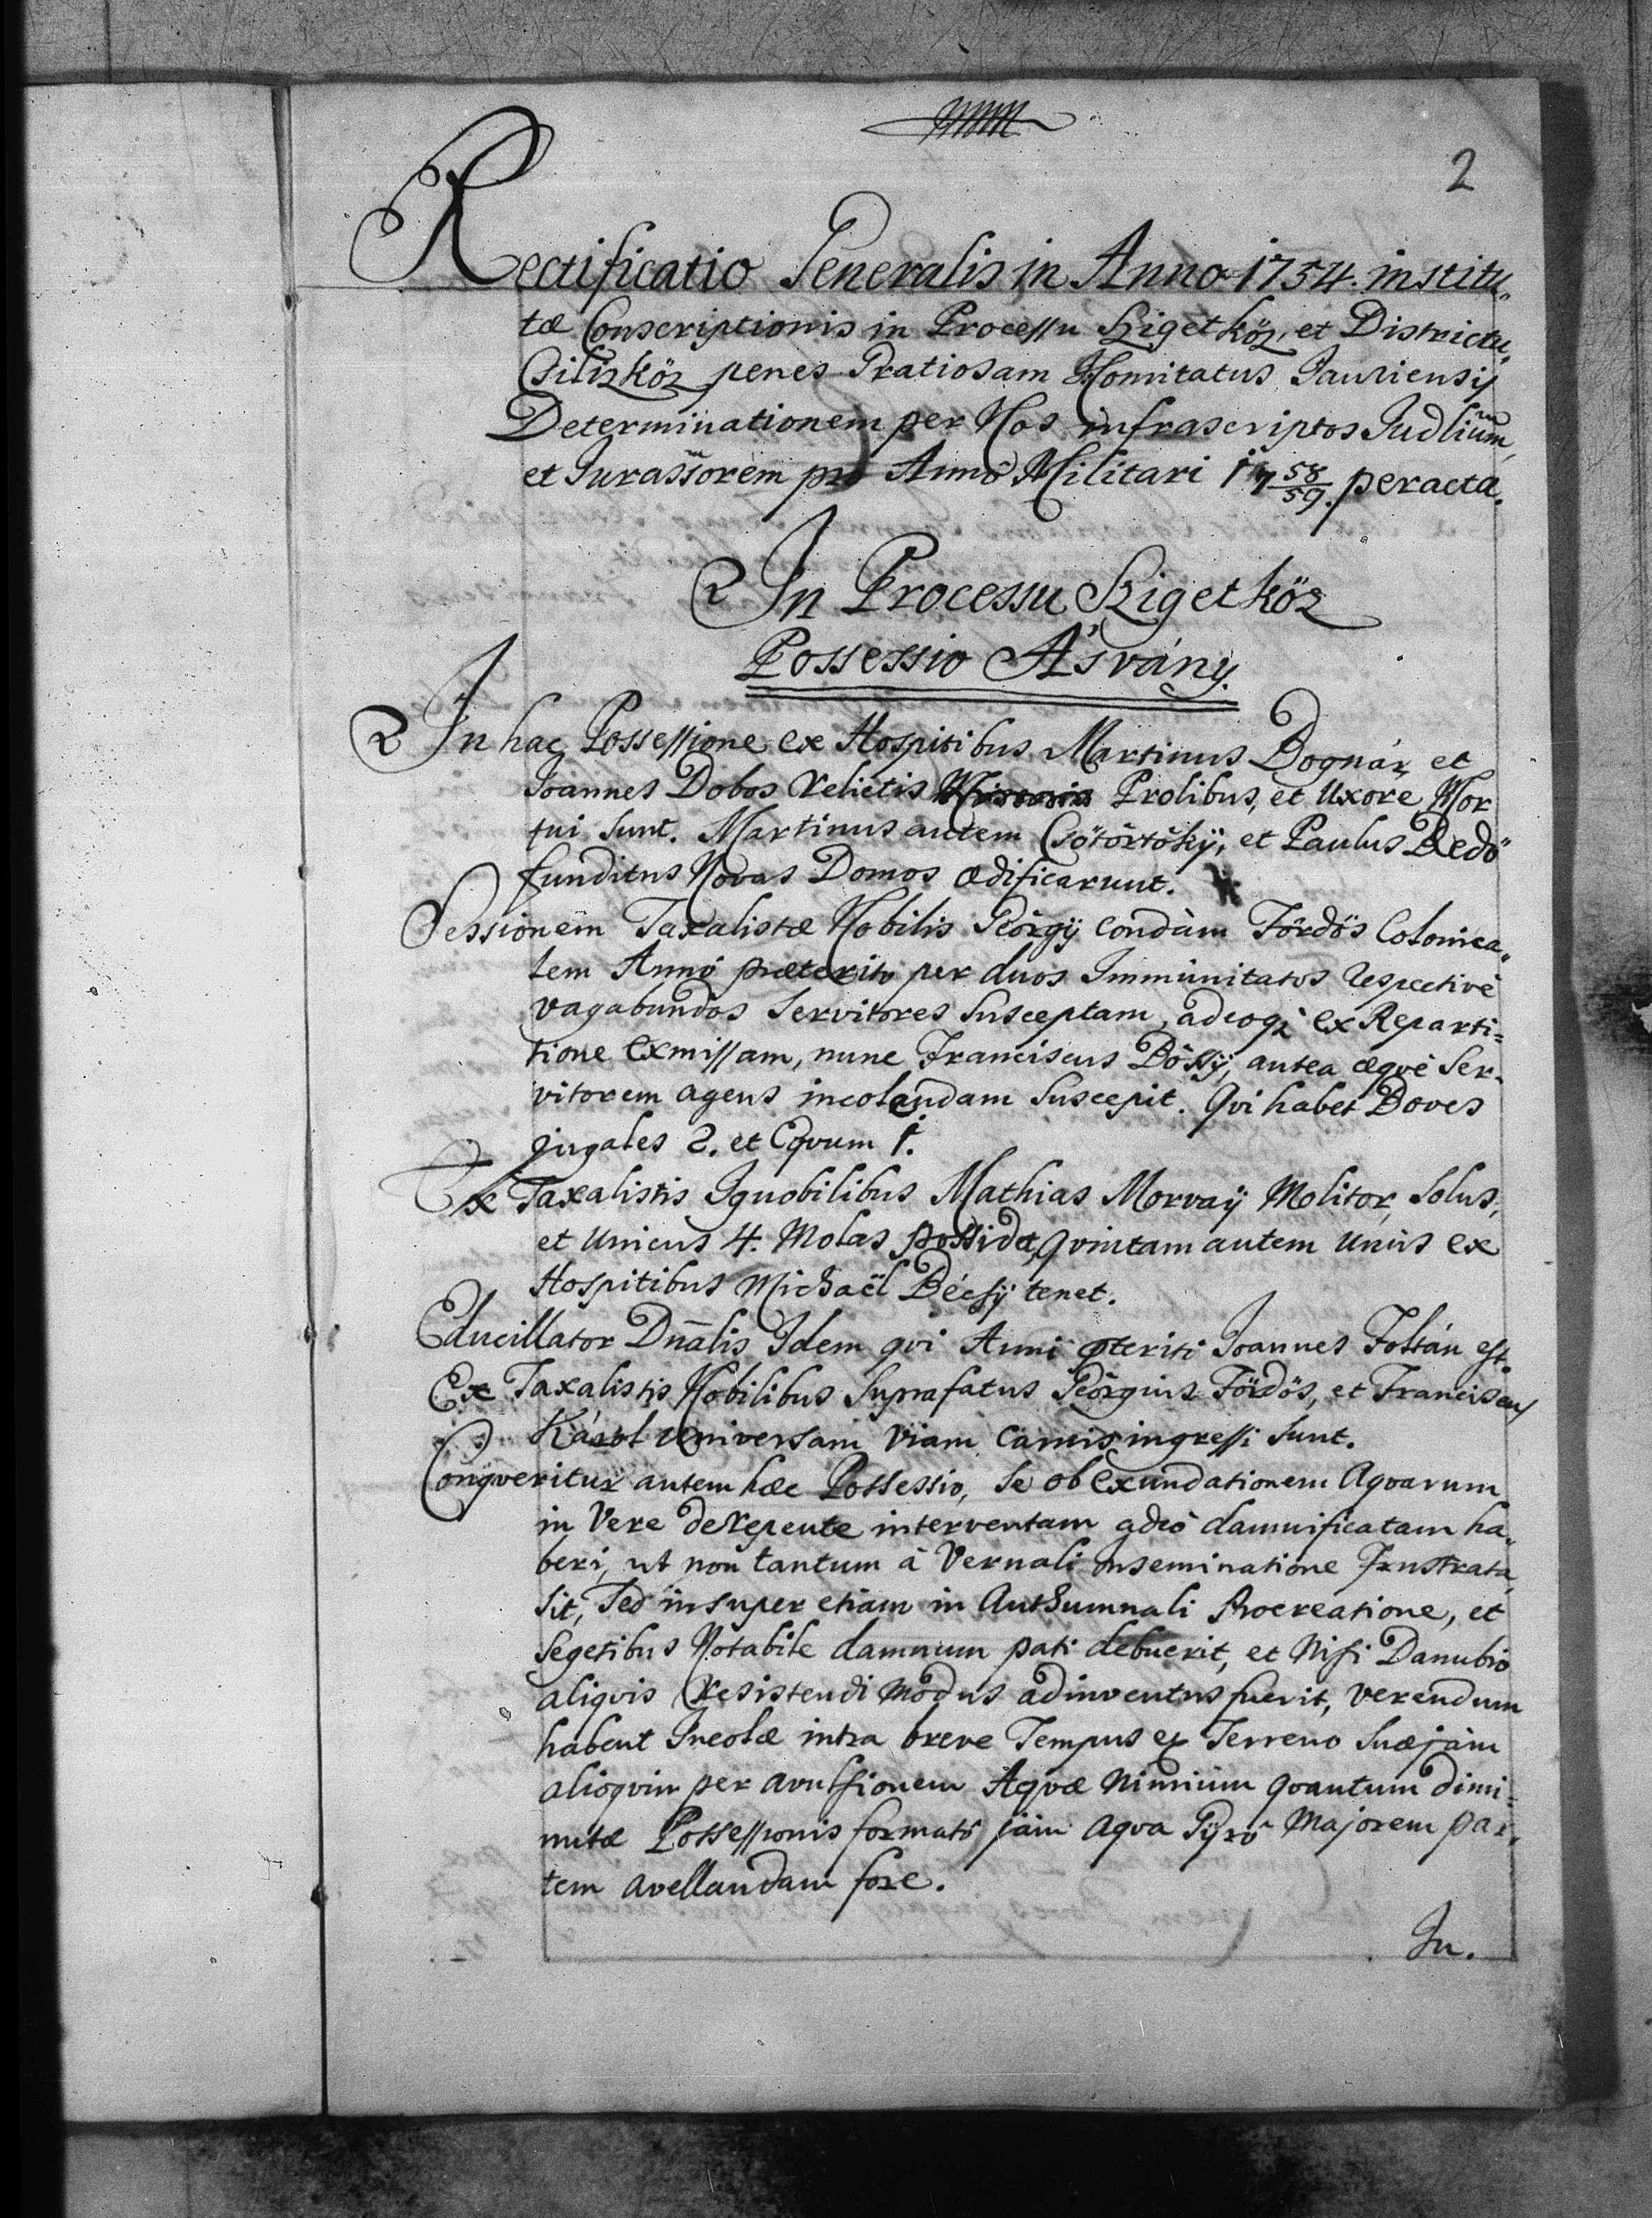 2
Rectificatio Generalis in Anno 1754. institu„
tæ Conscriptionis in Processu Szigetköz, et Districtu„
Csilizköz penes Gratiosam I. Comitatus Jauriensis
Determinationem per Nos infrascriptos Judlium,
et Jurassorem pro Anno Militari 17 58/59. peracta.
In Processu Szigetköz
Possessio Ásvány.
In hac Possessione ex Hospitibus Martinus Bognár, et
Joannes Dobos relictis Prolibus, et Uxore Mor
tui sunt. Martinus autem Csötörtöky, et Paulus Redö
funditus Novas Domos ædificarunt.
Sessionem Taxalistæ Nobilis Géorgÿ condàm Fördös Colonica„
lem Annô præterito per duos Immunitatos respectivè
vagabundos Servitores Susceptam, adeoq̀ ex Reparti=
tione exmissam, nunc Franciscus Bôssÿ, antea æquè Ser-
vitorem agens incolandam Suscepit. Qvi habet Boves
jugales 2. et Eqvum 1.
Ex Taxalistis Ignobilibus Mathias Morvaÿ Molitor, Solus,
et Unicus 4. Molas possidet, Qvintam autem unus ex
Hospitibus Michaël Bécsÿ tenet.
Educillator Dnalis Idem qvi Anni pteriti Joannes Foltán est.
Ex Taxalistis Nobilibus Suprafatus Géorgius Fördös, et Franciscus
Károl Universam viam Carnis ingressi Sunt.
Conqveritur autem hæc Possessio, Se ob Exundationem Aqvarum
in Vere derepente interventam adeò damnificatam ha„
beri, ut non tantum à Vernali inseminatione Frustrata
sit, Sed insuper etiam in Authumnali Procreatione, et
Segetibus Notabile damnum pati debuerit, et Nisi Danubio
aliqvis Resistendi modus adinventus fuerit, verendum
habent Incolæ intra breve Tempus ex Terreno Suæ jàm
alioqvin per avulsionem Aqvæ Nimiùm qvantum dimi=
nutæ Possessionis formatô jàm Aqva Gÿrô Majorem par„
tem avellandam fore.
In.